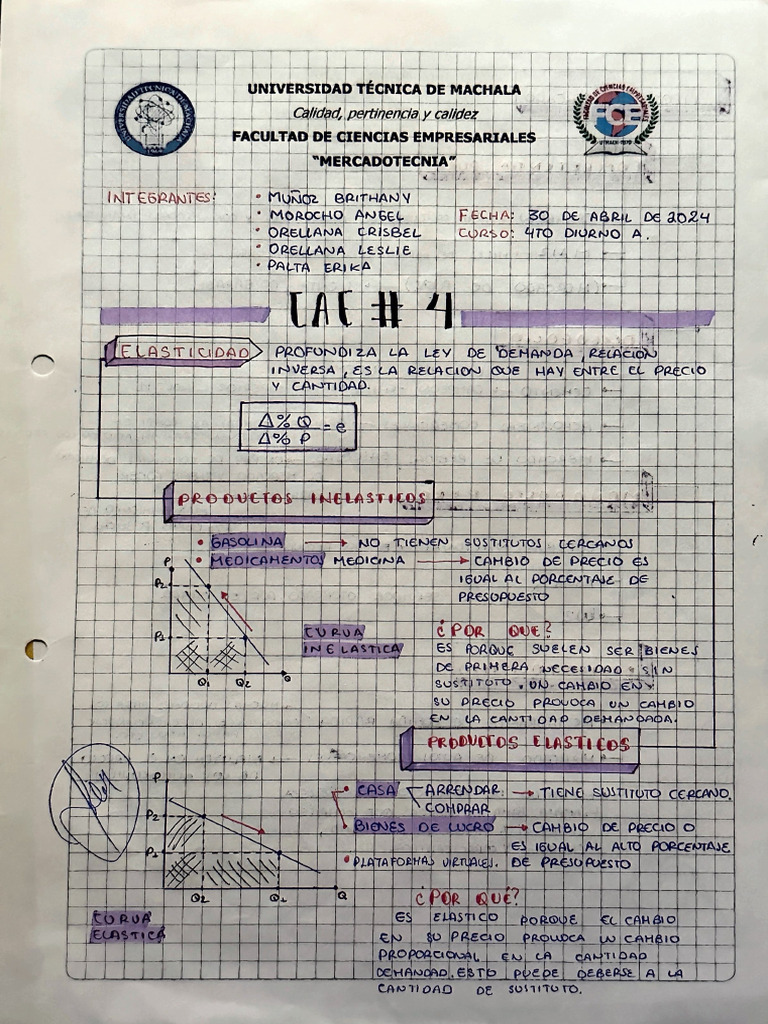 UNIVERSIDAD TÉCNICA DE MACHALA
Calidad, pertinencia y calidez
FACULTAD DE CIENCIAS EMPRESARIALES
"MERCADOTECNIA"
UNIVERSIDAD TECNICA DE MACHALA
FACULTAD DE CIENCIAS EMPRESARIALES
FCE
INTEGRANTES:
• MUÑOZ BRITHANY
• MOROCHO ANGEL
• ORELLANA CRISBEL
• ORELLANA LESLIE
• PALTA ERIKA
FECHA: 30 DE ABRIL DE 2024
CURSO: 4TO DIURNO A.
CAC # 4
ELASTICIDAD
PROFUNDIZA LA LEY DE DEMANDA, RELACION
INVERSA, ES LA RELACION QUE HAY ENTRE EL PRECIO
Y CANTIDAD.
Δ% Q
Δ% P
= e
PRODUCTOS INELASTICOS
• GASOLINA → NO TIENEN SUSTITUTOS CERCANOS
• MEDICAMENTOS MEDICINA → CAMBIO DE PRECIO ES
IGUAL AL PORCENTAJE DE
PRESUPUESTO
P
P2
P1
Q1 Q2 Q
CURVA
INELASTICA
¿POR QUE?
ES PORQUE SUELEN SER BIENES
DE PRIMERA NECESIDAD SIN
SUSTITUTO. UN CAMBIO EN
SU PRECIO PROVOCA UN CAMBIO
EN LA CANTIDAD DEMANDADA.
PRODUCTOS ELASTICOS
• CASA < ARRENDAR → TIENE SUSTITUTO CERCANO.
COMPRAR
• BIENES DE LUCRO → CAMBIO DE PRECIO O
ES IGUAL AL ALTO PORCENTAJE
• PLATAFORMAS VIRTUALES. DE PRESUPUESTO
P
P2
P1
Q2 Q1 Q
CURVA
ELASTICA
¿POR QUÉ?
ES ELASTICO PORQUE EL CAMBIO
EN SU PRECIO PROVOCA UN CAMBIO
PROPORCIONAL EN LA CANTIDAD
DEMANDAD. ESTO PUEDE DEBERSE A LA
CANTIDAD DE SUSTITUTO.